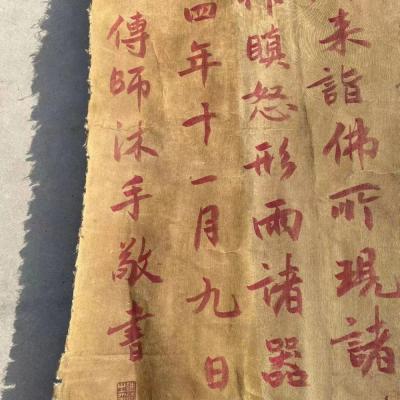 来詣佛所現諸
瞋怒形雨諸器
四年十一月九日
傅師沐手敬書